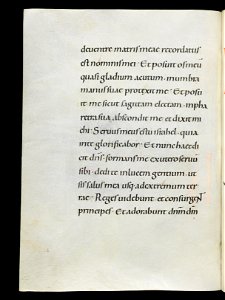 de ventre matris meae recordatus
est nominis mei · Et posuit os meū
quasi gladium acutum · in umbra
manus suae protexit me · Et posu
it me sicut sagittam electam · in pha
retra sua abscondit me et dixit mi
chi · Servus meus es tu israhel · quia
in te glorificabor · Et nunc haec di
cit dn̄s · formans me ex utero servū
sibi · dedi te in lucem gentium · ut
sis salus mea usq; ad extremum ter
rae · Reges videbunt · et consurgent
principes · Et adorabunt dn̄m dm̄